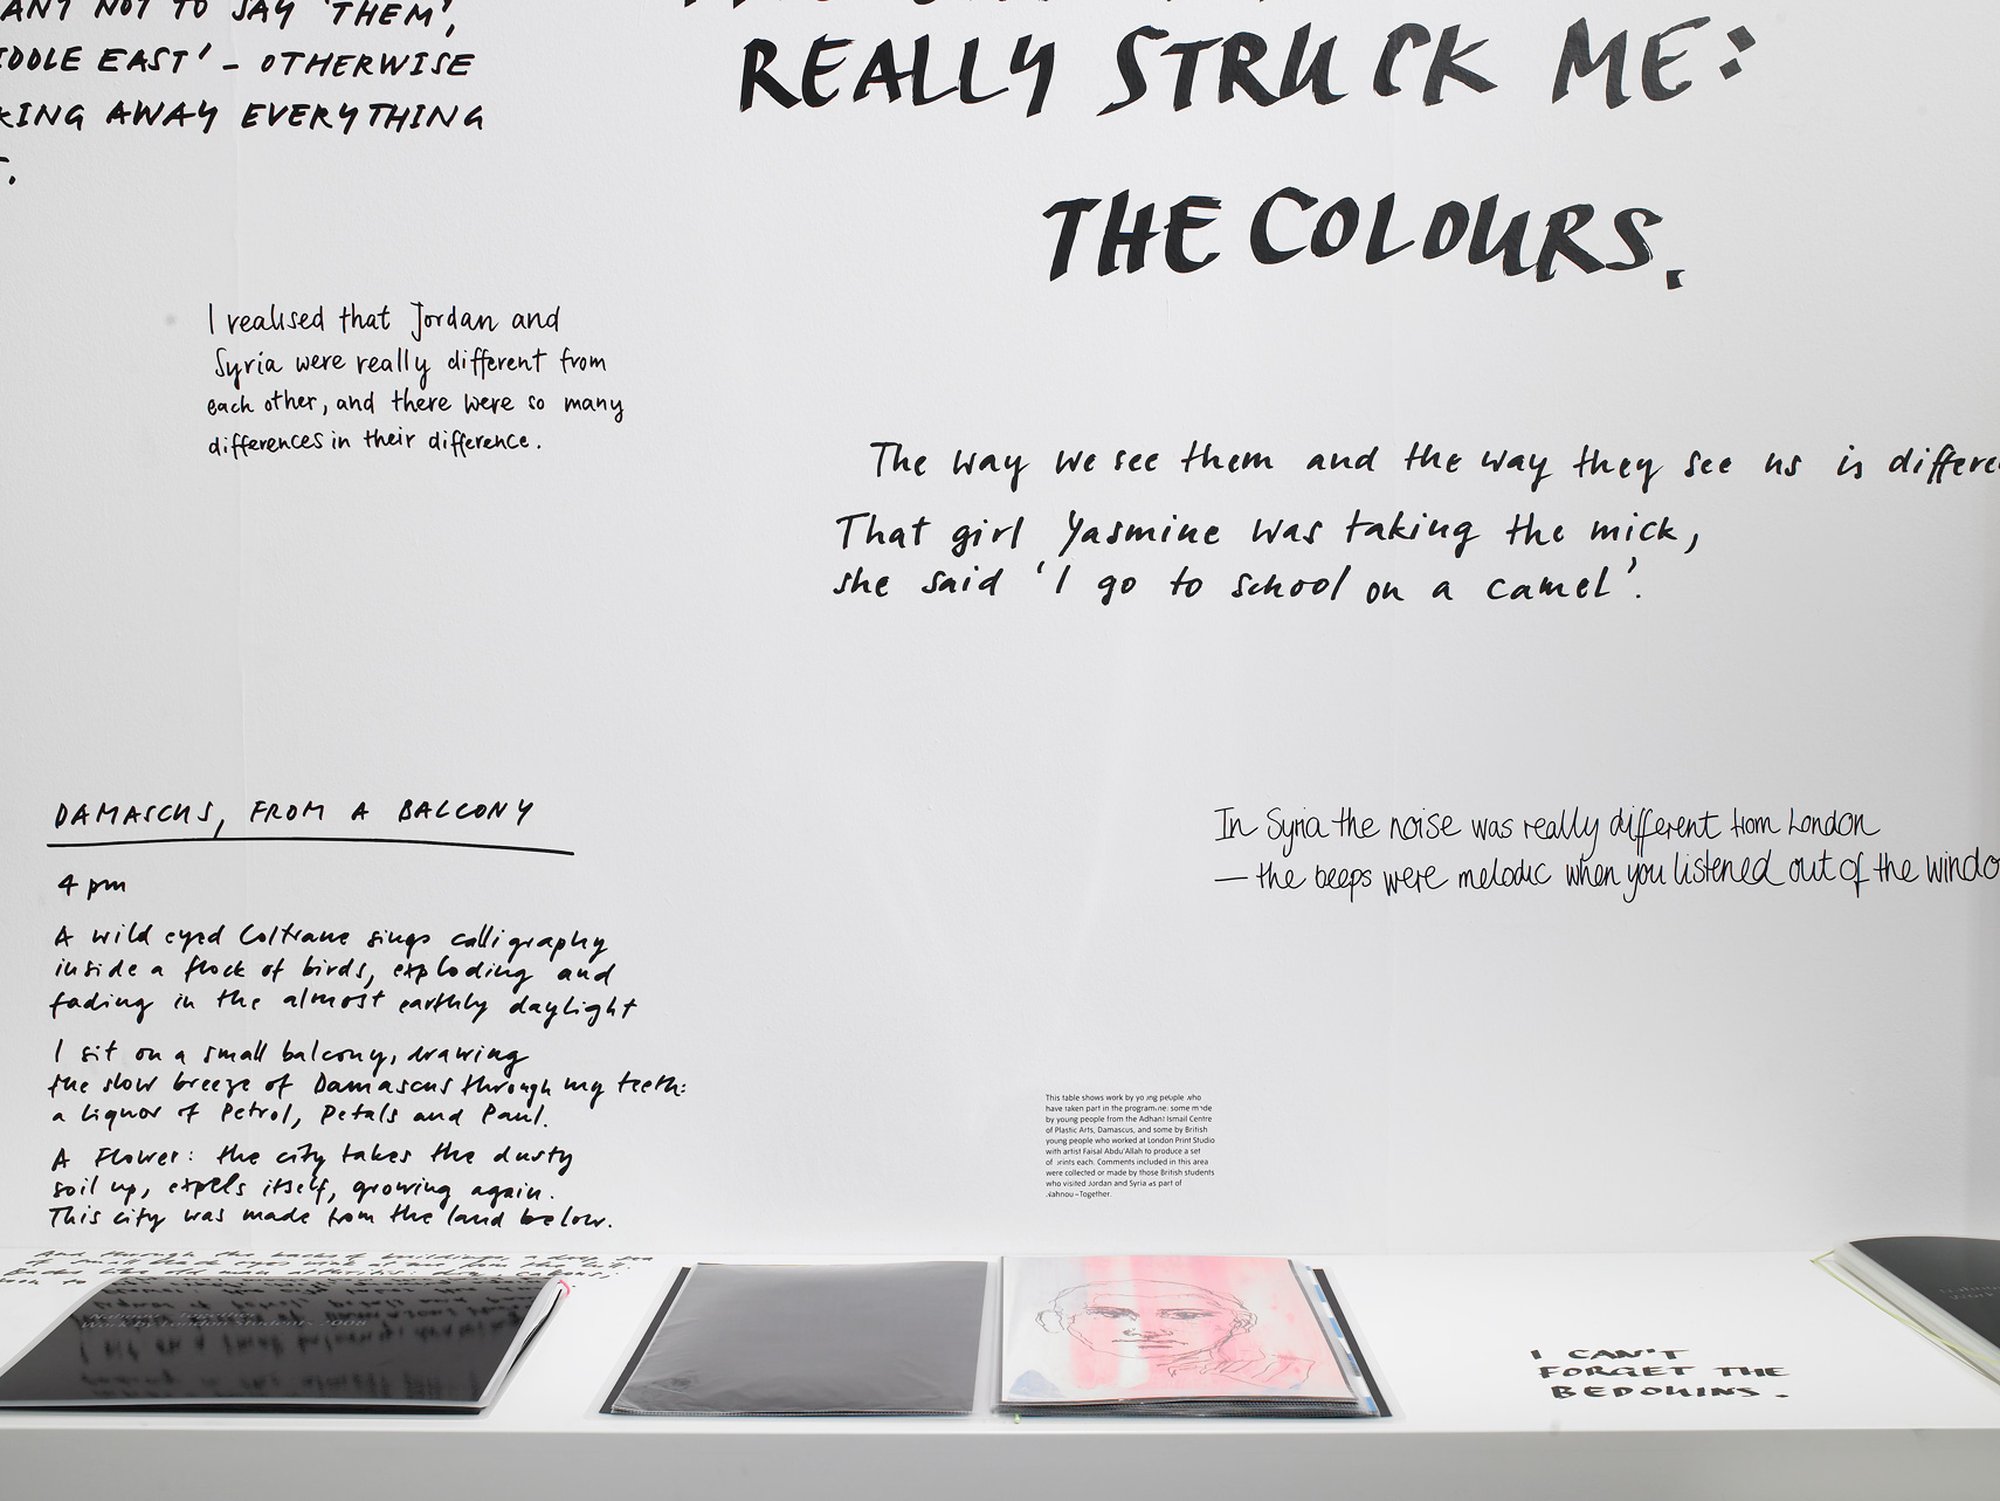 NOT TO SAY 'THEM',
EAST' – OTHERWISE
AWAY EVERYTHING
REALLY STRUCK ME:
THE COLOURS.
I realised that Jordan and
Syria were really different from
each other, and there were so many
differences in their difference.
The way we see them and the way they see us is
That girl Yasmine was taking the mick,
she said 'I go to school on a camel'.
DAMASCUS, FROM A BALCONY
4 pm
A wild eyed Coltrane sings calligraphy
inside a flock of birds, exploding and
fading in the almost earthly daylight
I sit on a small balcony, drawing
the slow breeze of Damascus through my teeth:
a liquor of Petrol, Petals and Paul.
A Flower: the city takes the dusty
soil up, expels itself, growing again.
This city was made from the land below.
And through the backs of buildings, a deep
of small black eyes wink at me from the
In Syria the noise was really different from London
– the beeps were melodic when you listened out of the
This table shows work by young people who
have taken part in the programme: some made
by young people from the Adham Ismail Centre
of Plastic Arts, Damascus, and some by British
young people who worked at London Print Studio
with artist Faisal Abdu'Allah to produce a set
of prints each. Comments included in this area
were collected or made by those British students
who visited Jordan and Syria as part of
Nahnou–Together.
Nahnou – Together
Work by London Students 2008
I CAN'T
FORGET THE
BEDOUINS.